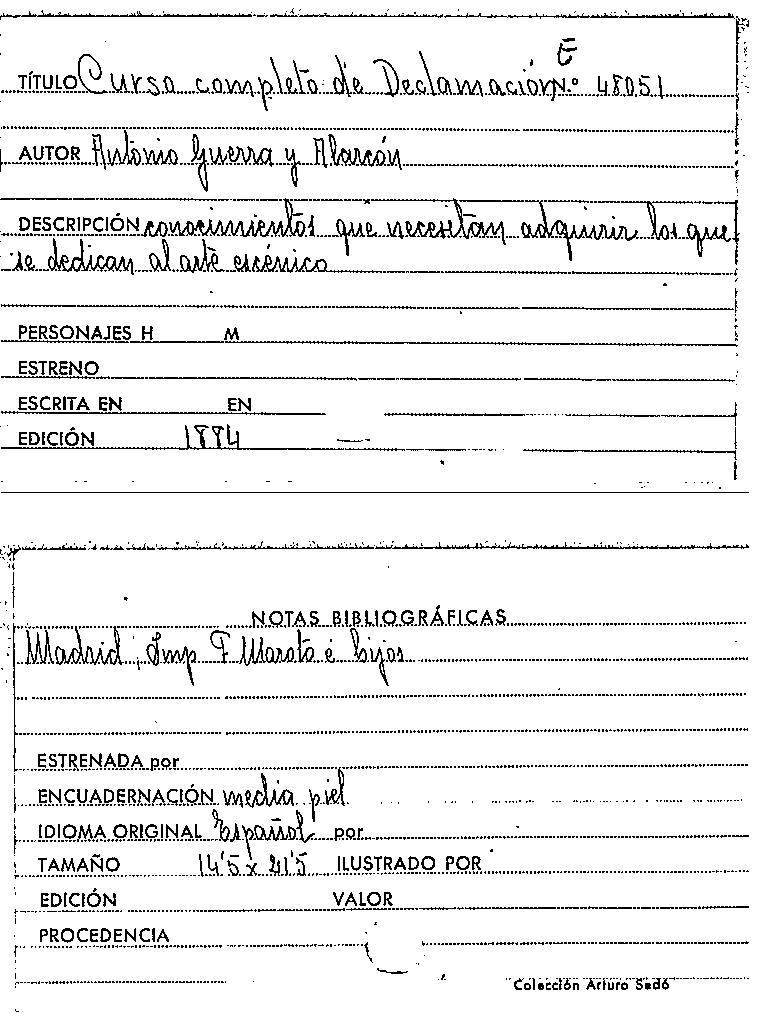 E
TÍTULO Curso completo de Declamación N.º 48051
AUTOR Antonio Guerra y Alarcón
DESCRIPCIÓN conocimientos que necesitan adquirir los que
se dedican al arte escénico
PERSONAJES H M
ESTRENO
ESCRITA EN EN
EDICIÓN 1884 —
NOTAS BIBLIOGRÁFICAS
Madrid, Imp F Maroto é hijos
ESTRENADA por
ENCUADERNACIÓN media piel
IDIOMA ORIGINAL Español por
TAMAÑO 14'5 x 21'5 ILUSTRADO POR
EDICIÓN VALOR
PROCEDENCIA
Colección Arturo Sedó